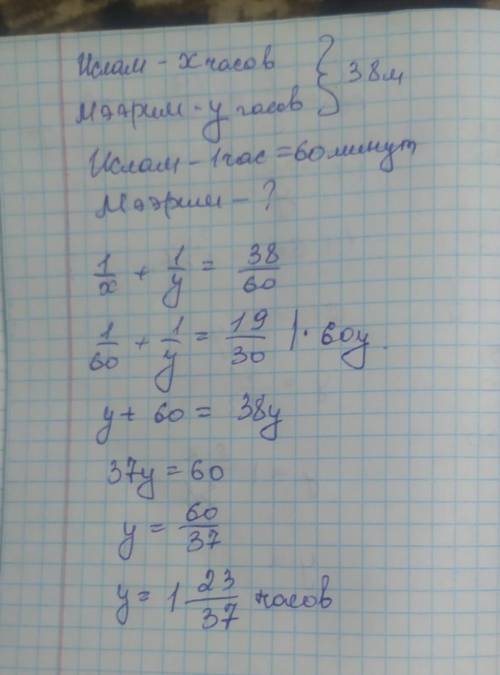 Ислам - x часов } 38м
Мээрим - y часов
Ислам - 1 час = 60 минут
Мээрим - ?
1/x + 1/y = 38/60
1/60 + 1/y = 19/30 | · 60y
y + 60 = 38y
37y = 60
y = 60/37
y = 1 23/37 часов